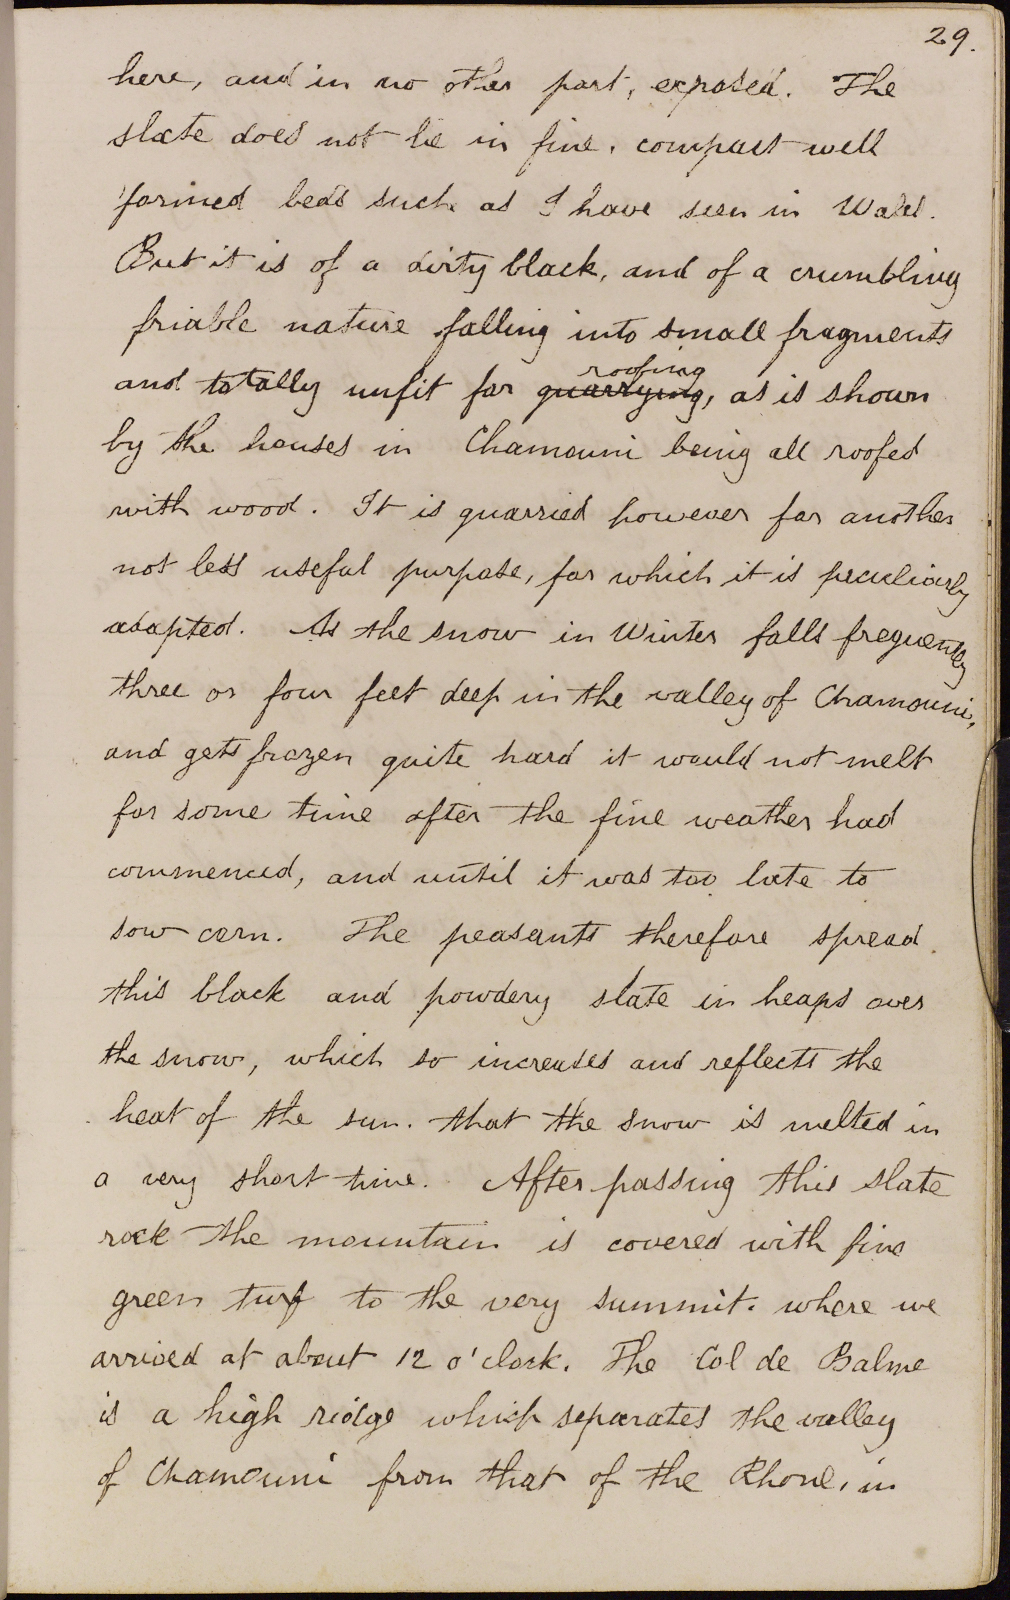 29.
here, and in no other part, exposed. The
slate does not lie in fine, compact well
formed beds such as I have seen in Wales.
But it is of a dirty black, and of a crumbling
friable nature falling into small fragments
roofing
and totally unfit for quarrying, as is shown
by the houses in Chamouni being all roofed
with wood. It is quarried however for another
not less useful purpose, for which it is peculiarly
adapted. As the snow in Winter falls frequently
three or four feet deep in the valley of Chamouni,
and gets frozen quite hard it would not melt
for some time after the fine weather had
commenced, and until it was too late to
sow corn. The peasants therefore spread
this black and powdery slate in heaps over
the snow, which so increases and reflects the
heat of the sun. that the snow is melted in
a very short time. After passing this slate
rock the mountain is covered with fine
green turf to the very summit. where we
arrived at about 12 o'clock. The Col de Balme
is a high ridge which separates the valley
of Chamouni from that of the Rhone, in